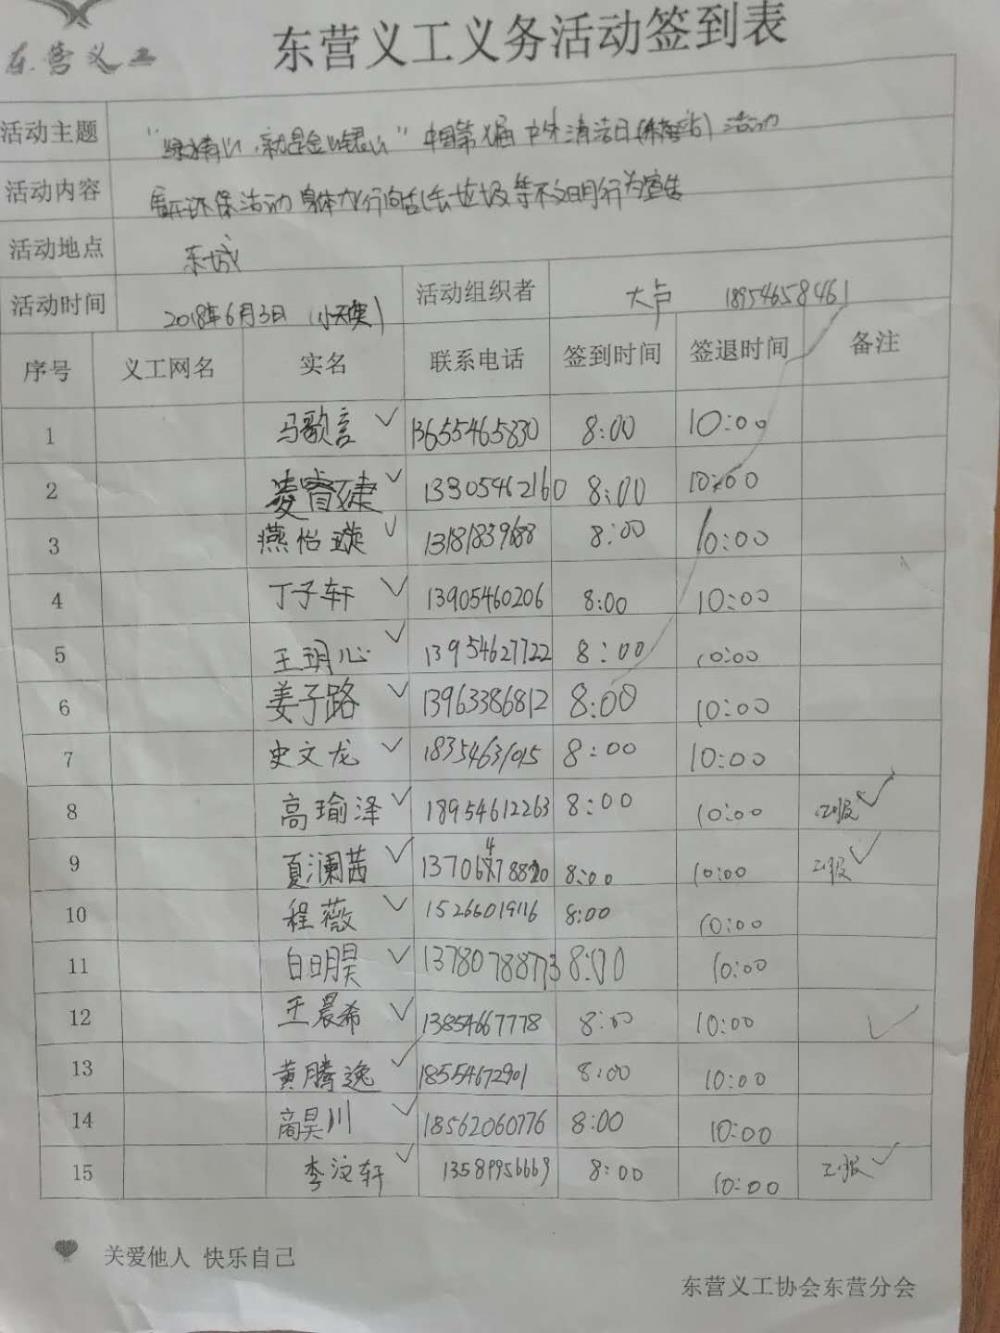 东营义工
东营义工义务活动签到表
活动主题 "绿水青山,就是金山银山" 中国第 届 清洁日 活动
活动内容 环保活动 身体力行向乱丢垃圾等不文明行为宣告
活动地点 东城
活动时间 2018年6月3日 (小天使) 活动组织者 大卢 18954658461
序号 义工网名 实名 联系电话 签到时间 签退时间 备注
1 马歌言 ✓ 13655465830 8:00 10:00
2 凌睿 ✓ 13305462160 8:00 10:00
3 燕怡璇 ✓ 8:00 10:00
4 丁子轩 ✓ 13905460206 8:00 10:00
5 王玥心 ✓ 13954627722 8:00 10:00
6 姜子路 ✓ 13963386812 8:00 10:00
7 史文龙 ✓ 18354631015 8:00 10:00
8 高瑜泽 ✓ 18954612263 8:00 10:00 汇报 ✓
9 夏澜茜 ✓ 8:00 10:00 汇报 ✓
10 程薇 ✓ 15266019116 8:00 10:00
11 白明昊 ✓ 13780788773 8:00 10:00
12 王晨希 ✓ 13854667778 8:00 10:00 ✓
13 黄腾逸 ✓ 18554672901 8:00 10:00
14 商昊川 ✓ 18562060776 8:00 10:00
15 李汶轩 ✓ 13589956669 8:00 10:00 汇报 ✓
关爱他人 快乐自己
东营义工协会东营分会